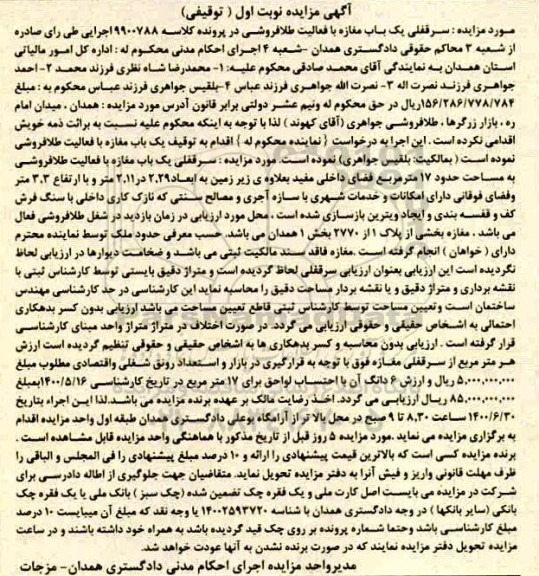 آگهی مزایده نوبت اول ( توقیفی)
مورد مزایده : سرقفلی یک باب مغازه با فعالیت طلافروشی در پرونده کلاسه ۹۹۰۰۷۸۸اجرایی طی رای صادره
از شعبه ۳ محاکم حقوقی دادگستری همدان -شعبه ۴ اجرای احکام مدنی محکوم له : اداره کل امور مالیاتی
استان همدان به نمایندگی آقای محمد صادقی محکوم علیه: ۱- محمدرضا شاه نظری فرزند محمد ۲-احمد
جواهری فرزند نصرت اله ۳- نصرت الله جواهری فرزند عباس ۴-بلقیس جواهری فرزند عباس محکوم به : مبلغ
۱۵۶/۲۸۶/۷۷۸/۷۸۴ریال در حق محکوم له ونیم عشر دولتی برابر قانون آدرس مورد مزایده : همدان ، میدان امام
ره ، بازار زرگرها ، طلافروشی جواهری (آقای کهوند ) لذا با توجه به اینکه محکوم علیه نسبت به برائت ذمه خویش
اقدامی نکرده است . این اجراء به درخواست { نماینده محکوم له } اقدام به توقیف یک باب مغازه با فعالیت طلافروشی
نموده است ( بمالکیت: بلقیس جواهری) نموده است. مورد مزایده : سرقفلی یک باب مغازه با فعالیت طلافروشی
به مساحت حدود ۱۷ مترمربع فضای داخلی مفید بعلاوه ی زیر زمین به ابعاد۲.۲۹ در۲.۱۱ متر و با ارتفاع ۳.۳ متر
وفضای فوقانی دارای امکانات و خدمات شهری با سازه آجری و مصالح سنتی که نازک کاری داخلی با سنگ فرش
کف و قفسه بندی و ایجاد ویترین بازسازی شده است ، محل مورد ارزیابی در زمان بازدید در شغل طلافروشی فعال
می باشد . مغازه بخشی از پلاک ۱ از ۲۷۷۰ بخش ۱ همدان می باشد. حسب معرفی حدود ملک توسط نماینده محترم
دارای ( خواهان ) انجام گرفته است .مغازه فاقد سند مالکیت ثبتی می باشد و ضخامت دیوارها در ارزیابی لحاظ
نگردیده است این ارزیابی بعنوان ارزیابی سرقفلی لحاظ گردیده است و متراژ دقیق بایستی توسط کارشناس ثبتی با
نقشه برداری و متراژ دقیق و یا نقشه بردار مساحت دقیق را محاسبه نماید این کارشناسی در حد کارشناسی مهندس
ساختمان است و تعیین مساحت توسط کارشناس ثبتی قاطع تعیین مساحت می باشد ارزیابی بدون کسر بدهکاری
احتمالی به اشخاص حقیقی و حقوقی ارزیابی می گردد. در صورت اختلاف در متراژ متراژ واحد مبنای کارشناسی
قرار گرفته است . ارزیابی بدون محاسبه و کسر بدهکاری ها به اشخاص حقیقی و حقوقی تنظیم گردیده است ارزش
هر متر مربع از سرقفلی مغازه فوق با توجه به قرارگیری در بازار و استعداد رونق شغلی واقتصادی مطلوب مبلغ
۵,۰۰۰,۰۰۰,۰۰۰ ریال و ارزش ۶ دانگ آن با احتساب لواحق برای ۱۷ متر مربع در تاریخ کارشناسی ۱۴۰۰/۵/۱۶بمبلغ
۸۵,۰۰۰,۰۰۰,۰۰۰ ریال ارزیابی می گردد. اخذ رضایت مالک بر عهده برنده مزایده می باشد.لذا این اجراء بتاریخ
۱۴۰۰/۶/۳۰ ساعت ۸,۳۰ تا ۹ صبح در محل بالاتر از آرامگاه بوعلی دادگستری همدان طبقه اول واحد مزایده اقدام
به برگزاری مزایده می نماید .مورد مزایده ۵ روز قبل از تاریخ مذکور با هماهنگی واحد مزایده قابل مشاهده است .
برنده مزایده کسی است که بالاترین قیمت پیشنهادی را ارائه و ۱۰ درصد مبلغ پیشنهادی را فی المجلس و الباقی را
ظرف مهلت قانونی واریز و فیش آنرا به دفتر مزایده تحویل نماید. متقاضیان جهت جلوگیری از اطاله دادرسی برای
شرکت در مزایده می بایست اصل کارت ملی و یک فقره چک تضمین شده (چک سبز ) بانک ملی یا یک فقره چک
بانکی (سایر بانکها ) در وجه دادگستری همدان با شناسه ۱۴۰۰۲۵۹۳۷۲۰ یا وجه نقد که مبلغ آن میبایست ۱۰ درصد
مبلغ کارشناسی باشد وحتما شماره پرونده بر روی چک قید گردیده باشد به همراه خود داشته باشند و در ساعت
مزایده تحویل دفتر مزایده نمایند که در صورت برنده نشدن به آنها عودت خواهد شد.
مدیرواحد مزایده اجرای احکام مدنی دادگستری همدان- مزجات